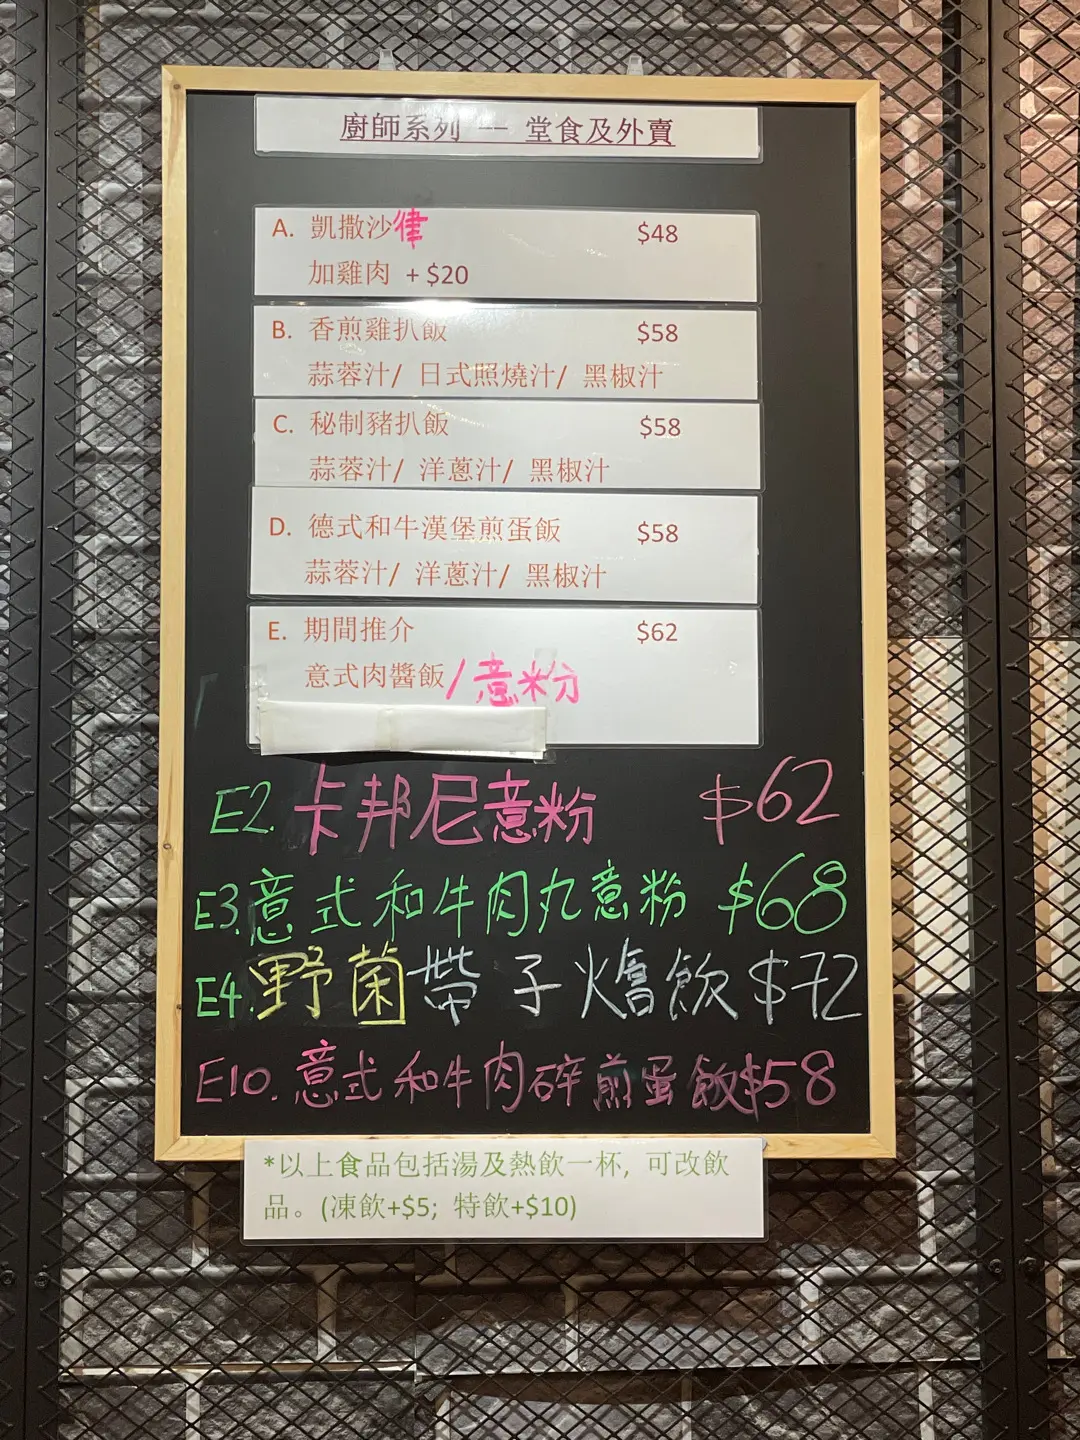 廚師系列 -- 堂食及外賣
A. 凱撒沙律 $48
加雞肉 + $20
B. 香煎雞扒飯 $58
蒜蓉汁/ 日式照燒汁/ 黑椒汁
C. 秘制豬扒飯 $58
蒜蓉汁/ 洋蔥汁/ 黑椒汁
D. 德式和牛漢堡煎蛋飯 $58
蒜蓉汁/ 洋蔥汁/ 黑椒汁
E. 期間推介 $62
意式肉醬飯/意粉
E2. 卡邦尼意粉 $62
E3. 意式和牛肉丸意粉 $68
E4. 野菌帶子燴飯 $72
E10. 意式和牛肉碎煎蛋飯 $58
*以上食品包括湯及熱飲一杯, 可改飲
品。(凍飲+$5; 特飲+$10)